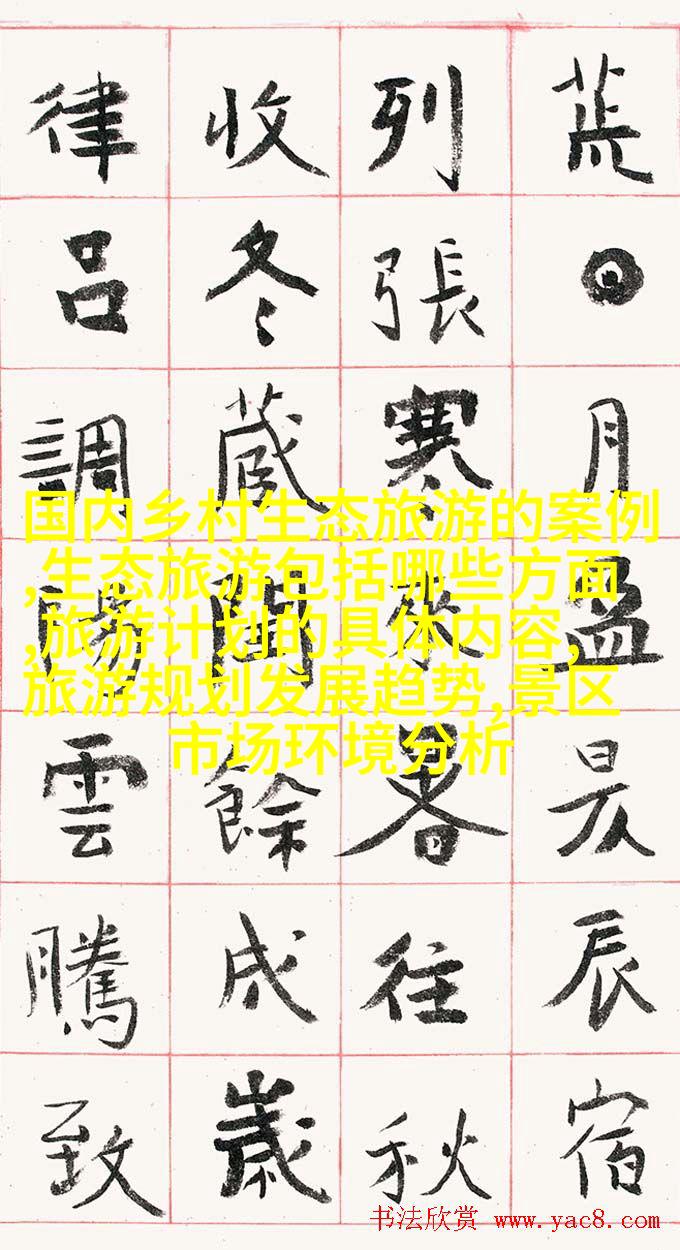 荒日月盈昃辰宿
列張寒來暑往秋
收冬藏閏餘成歲
律吕調陽雲騰致
国内乡村生态旅游的案例
,生态旅游包括哪些方面
,旅游计划的具体内容,
旅游规划发展趋势,景区
市场环境分析
书法欣赏 www.yac8.com